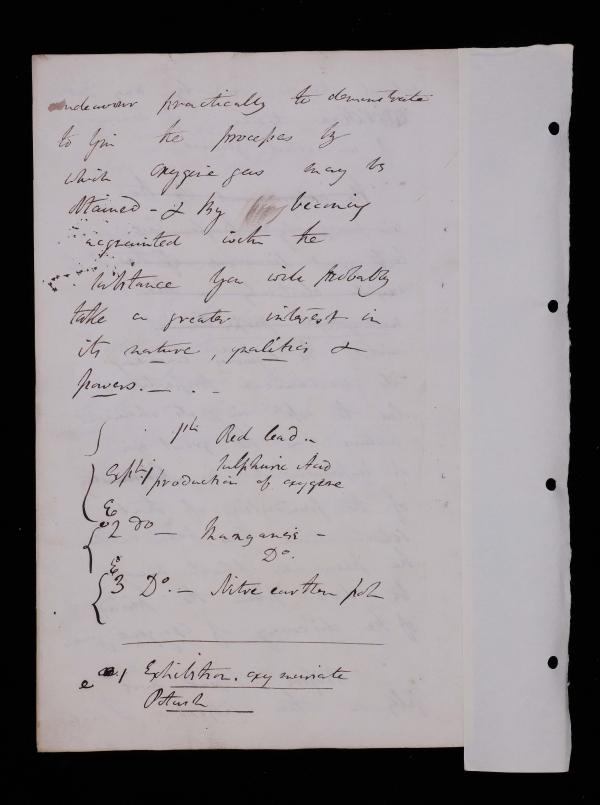 endeavour practically to demonstrate
to you the processes by
which oxygene gas may be
obtained - & By becoming
acquainted with the
substance you will probably
take a greater interest in
its nature, qualities &
powers. — . -
1st Red lead. -
Sulphuric Acid
Expt 1 production of oxygene
E
2 do — Manganese -
Do.
E
3 Do. — Nitre earthen pot
e 1 Exhibition. oxymuriate
Potash